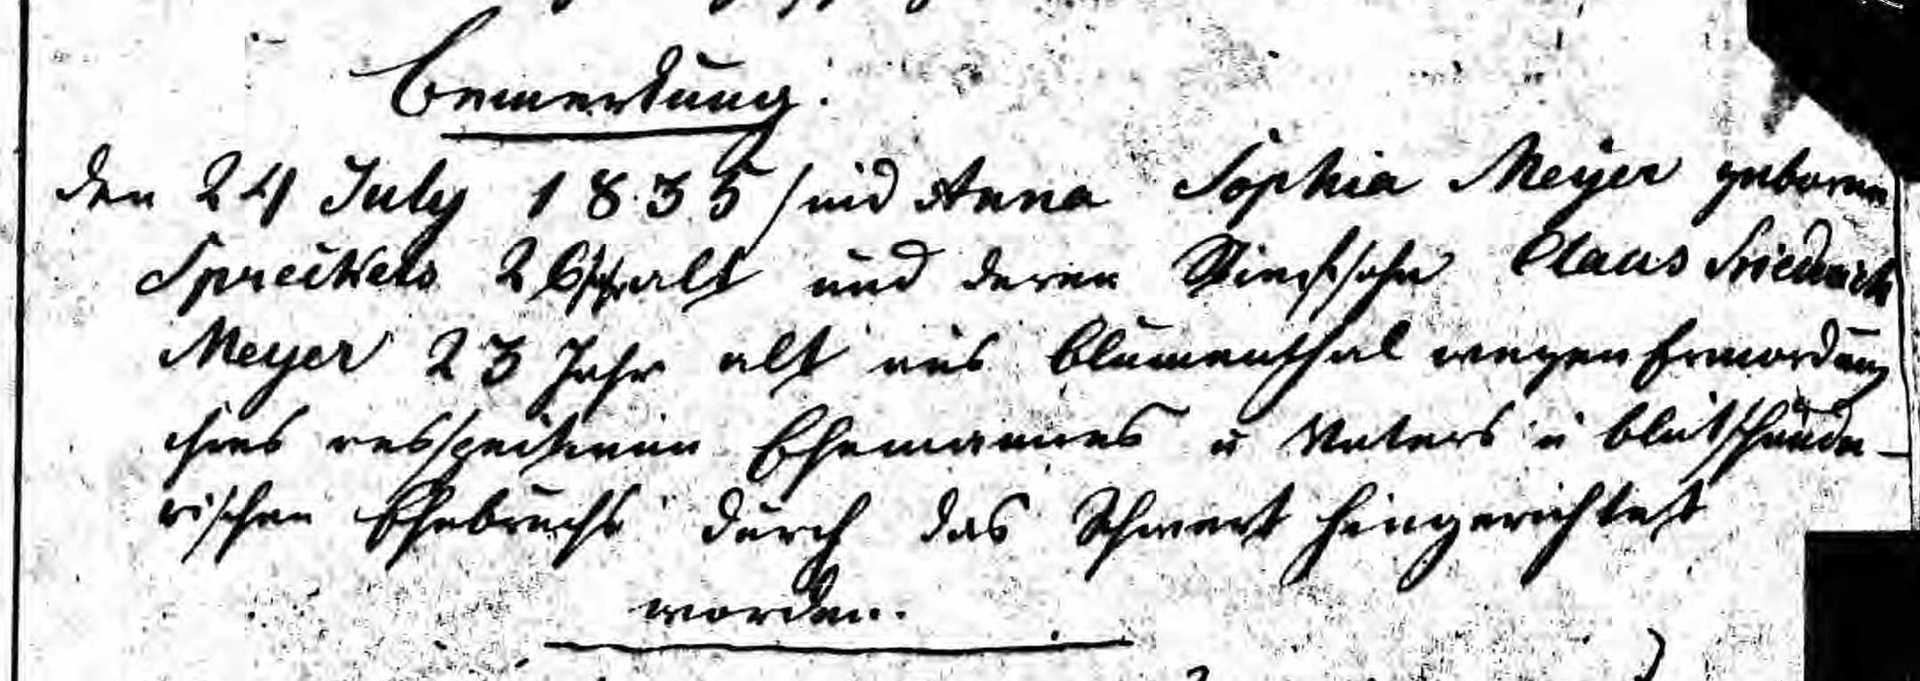 Bemerkung:
den 24 July 1835 sind Anna Sophia Meyer geborene
Spreckels 26 J alt und deren Stiefsohn Claus Friedrich
Meyer 23 Jahr alt aus Blumenthal wegen Ermordung
ihres resspectiven Ehemannes u Vaters u blutschände-
rischen Ehebruchs durch das Schwert hingerichtet
worden.